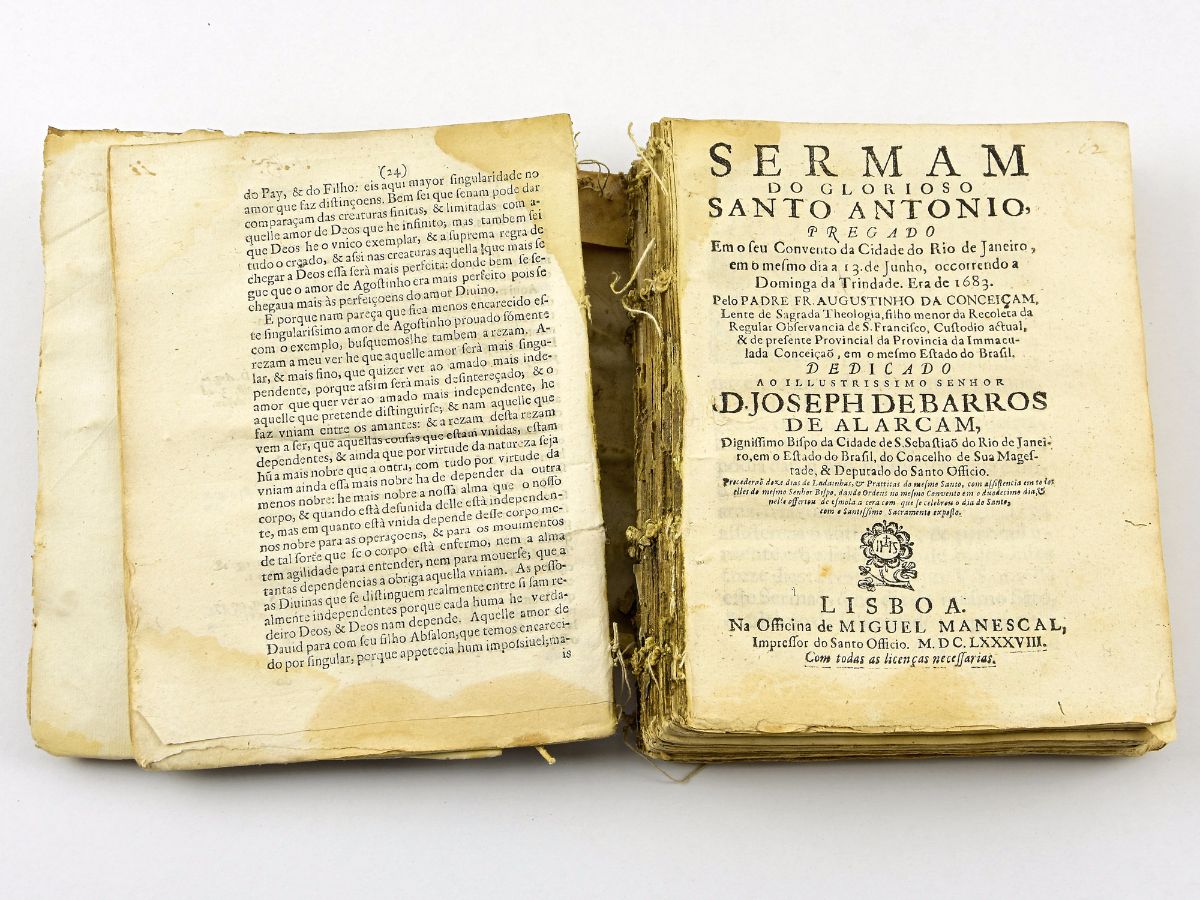 (24)
do Pay, & do Filho: eis aqui mayor singularidade no
amor que faz distinçoens. Bem sei que senam pode dar
comparaçam das creaturas finitas, & limitadas com a-
quelle amor de Deos que he infinito; mas tambem sei
que Deos he o vnico exemplar, & a suprema regra de
tudo o creado, & assi nas creaturas aquella que mais se
chegar a Deos essa serà mais perfeita: donde bem se se-
gue que o amor de Agostinho era mais perfeito pois se
chegaua mais às perfeiçoens do amor Diuino.
E porque nam pareça que fica menos encarecido es-
te singularissimo amor de Agostinho prouado sómente
com o exemplo, busquemoslhe tambem a rezam. A-
rezam a meu ver he que aquelle amor serà mais singu-
lar, & mais fino, que quizer ver ao amado mais inde-
pendente, porque assim serà mais desintereçado; & o
amor que quer ver ao amado mais independente, he
aquelle que pretende distinguirse; & nam aquelle que
faz vniam entre os amantes: & a rezam desta rezam
vem a ser, que aquellas cousas que estam vnidas, estam
dependentes, & ainda que por virtude da natureza seja
hũ a mais nobre que a outra, com tudo por virtude da
vniam ainda essa mais nobre ha de depender da outra
menos nobre: he mais nobre a nossa alma que o nosso
corpo, & quando està desunida delle està independen-
te, mas em quanto està vnida depende desse corpo me-
nos nobre para as operaçoens, & para os mouimentos
de tal sorte que se o corpo està enfermo, nem a alma
tem agilidade para entender, nem para mouerse; que a
tantas dependencias a obriga aquella vniam. As pesso-
as Diuinas que se distinguem realmente entre si sam re-
almente independentes porque cada huma he verda-
deiro Deos, & Deos nam depende. Aquelle amor de
Dauid para com seu filho Absalon, que temos encareci-
do por singular, porque appetecia hum impossiuel, ma-
is
12
SERMAM
DO GLORIOSO
SANTO ANTONIO,
PREGADO
Em o seu Convento da Cidade do Rio de Janeiro,
em o mesmo dia a 13. de Junho, occorrendo a
Dominga da Trindade. Era de 1683.
Pelo PADRE FR. AUGUSTINHO DA CONCEIÇAM,
Lente de Sagrada Theologia, filho menor da Recoleta da
Regular Observancia de S. Francisco, Custodio actual,
& de presente Provincial da Provincia da Immacu-
lada Conceiçaõ, em o mesmo Estado do Brasil.
DEDICADO
AO ILLUSTRISSIMO SENHOR
D. JOSEPH DE BARROS
DE ALARCAM,
Dignissimo Bispo da Cidade de S. Sebastiaõ do Rio de Janei-
ro, em o Estado do Brasil, do Concelho de Sua Mages-
tade, & Deputado do Santo Officio.
Precederaõ doze dias de Ladainhas, & Pratticas do mesmo Santo, com assistencia em todos
elles do mesmo Senhor Bispo, dando Ordens no mesmo Convento em o duodecimo dia, &
nelle offertou de esmola a cera com que se celebrou o dia do Santo,
com o Santissimo Sacramento exposto.
IHS
LISBOA.
Na Officina de MIGUEL MANESCAL,
Impressor do Santo Officio. M. DC. LXXXVIII.
Com todas as licenças necessarias.